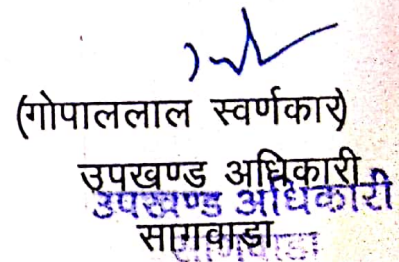 (गोपाललाल स्वर्णकार)
उपखण्ड अधिकारी
उपखण्ड अधिकारी
सागवाडा